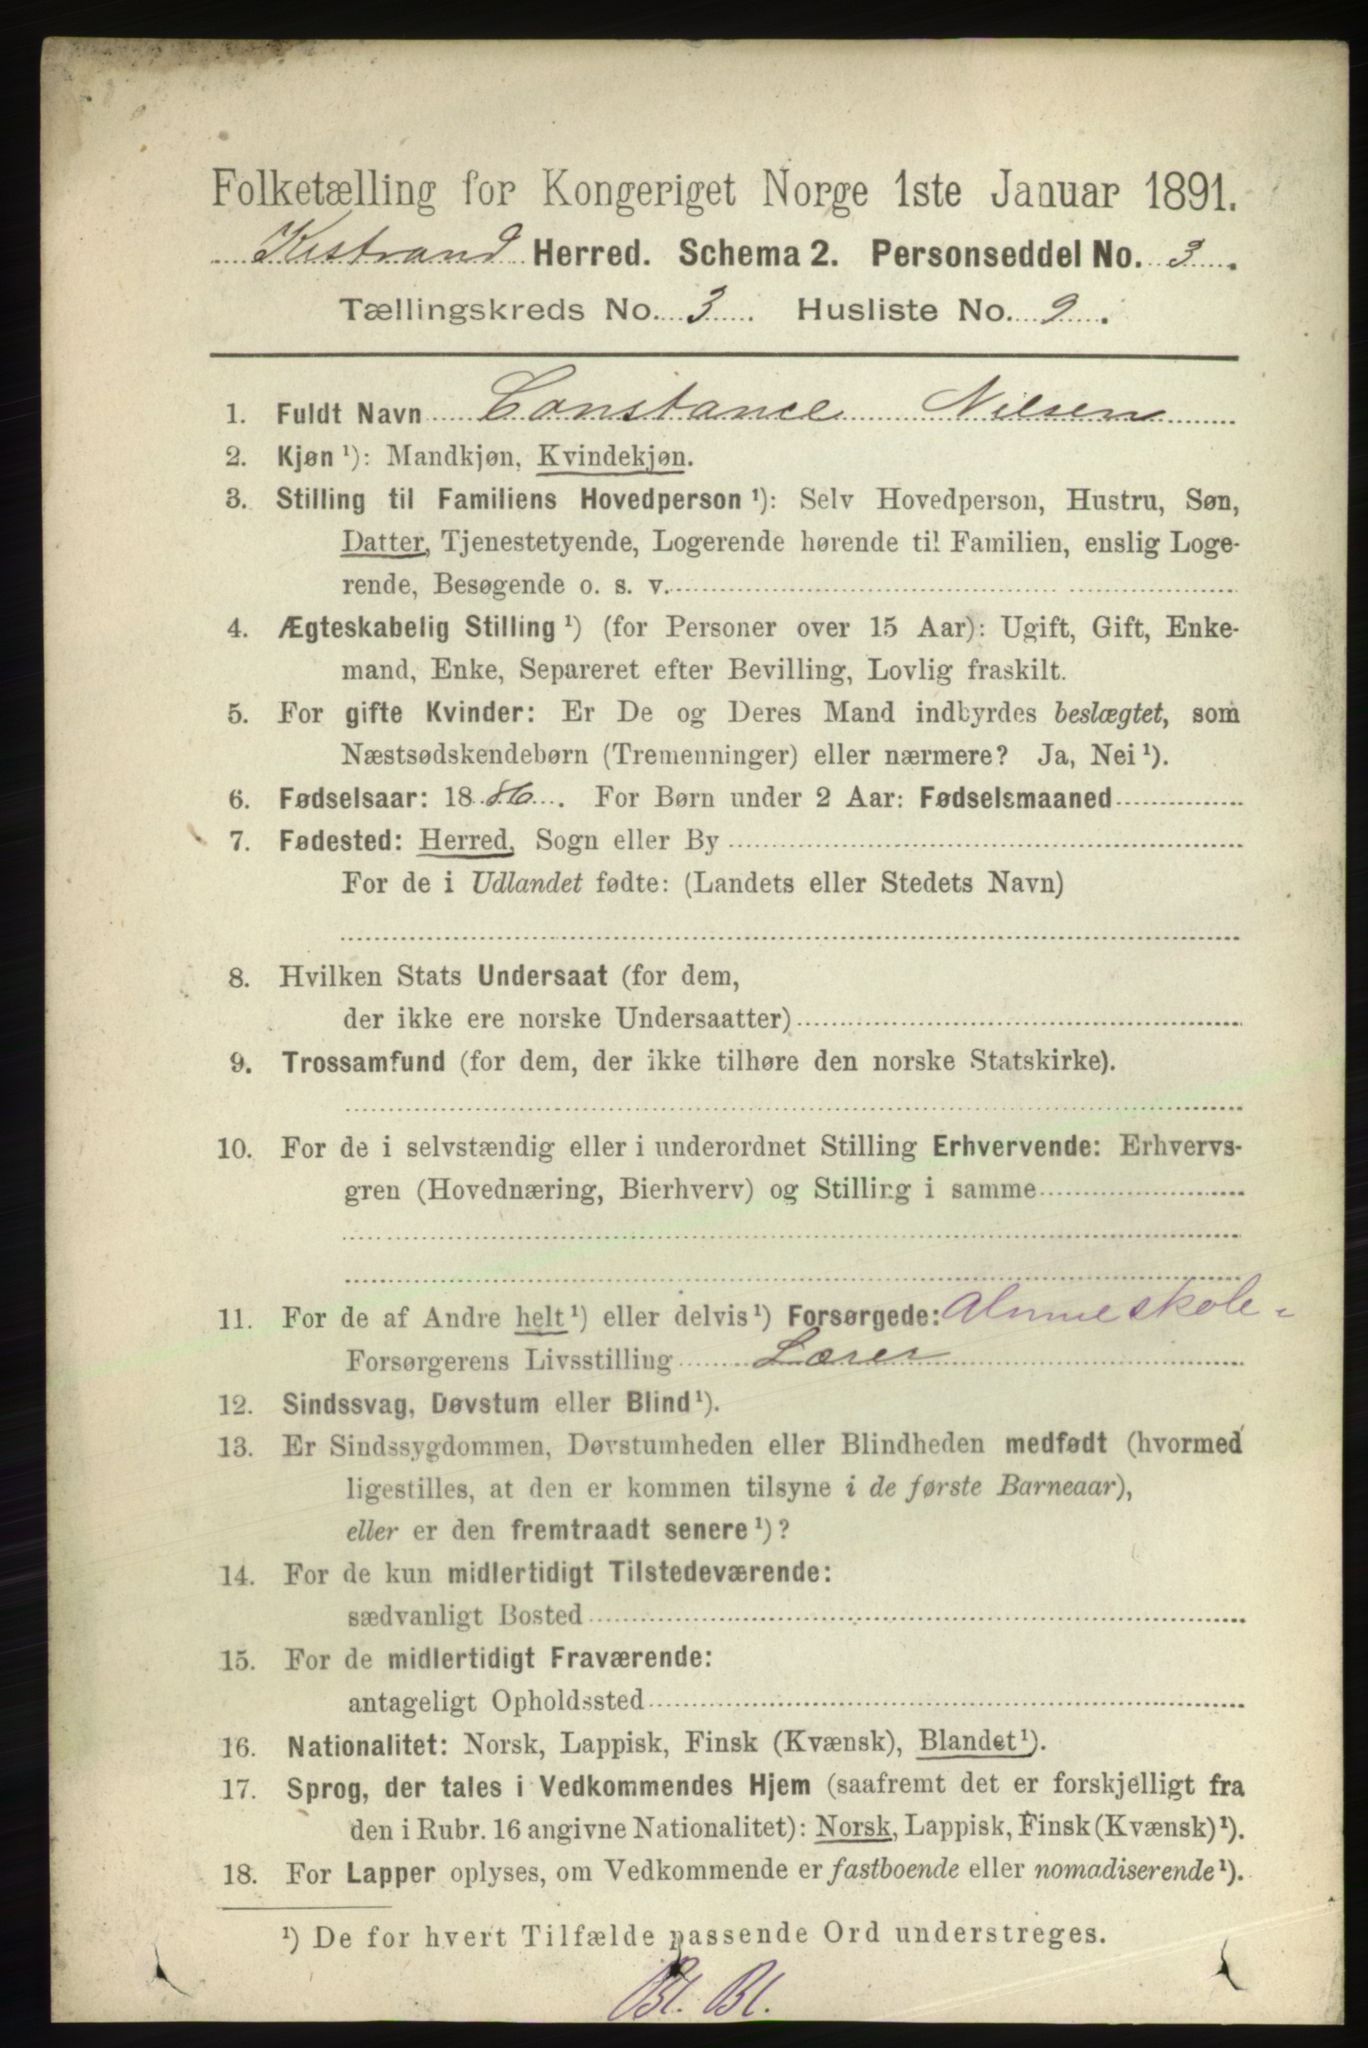 Folketælling for Kongeriget Norge 1ste Januar 1891.
Kistrand Herred. Schema 2. Personseddel No. 3.
Tællingskreds No. 3. Husliste No. 9.
1. Fuldt Navn Constance Nilsen
2. Kjøn ¹): Mandkjøn, Kvindekjøn.
3. Stilling til Familiens Hovedperson ¹): Selv Hovedperson, Hustru, Søn,
Datter, Tjenestetyende, Logerende hørende til Familien, enslig Loge-
rende, Besøgende o. s. v.
4. Ægteskabelig Stilling ¹) (for Personer over 15 Aar): Ugift, Gift, Enke-
mand, Enke, Separeret efter Bevilling, Lovlig fraskilt.
5. For gifte Kvinder: Er De og Deres Mand indbyrdes beslægtet, som
Næstsødskendebørn (Tremenninger) eller nærmere? Ja, Nei ¹).
6. Fødselsaar: 1886. For Børn under 2 Aar: Fødselsmaaned
7. Fødested: Herred, Sogn eller By
For de i Udlandet fødte: (Landets eller Stedets Navn)
8. Hvilken Stats Undersaat (for dem,
der ikke ere norske Undersaatter)
9. Trossamfund (for dem, der ikke tilhøre den norske Statskirke).
10. For de i selvstændig eller i underordnet Stilling Erhvervende: Erhvervs-
gren (Hovednæring, Bierhverv) og Stilling i samme
11. For de af Andre helt ¹) eller delvis ¹) Forsørgede: Almueskole-
Forsørgerens Livsstilling Lærer
12. Sindssvag, Døvstum eller Blind ¹).
13. Er Sindssygdommen, Døvstumheden eller Blindheden medfødt (hvormed
ligestilles, at den er kommen tilsyne i de første Barneaar),
eller er den fremtraadt senere ¹)?
14. For de kun midlertidigt Tilstedeværende:
sædvanligt Bosted
15. For de midlertidigt Fraværende:
antageligt Opholdssted
16. Nationalitet: Norsk, Lappisk, Finsk (Kvænsk), Blandet ¹).
17. Sprog, der tales i Vedkommendes Hjem (saafremt det er forskjelligt fra
den i Rubr. 16 angivne Nationalitet): Norsk, Lappisk, Finsk (Kvænsk) ¹).
18. For Lapper oplyses, om Vedkommende er fastboende eller nomadiserende ¹).
¹) De for hvert Tilfælde passende Ord understreges.
Bl. Bl.